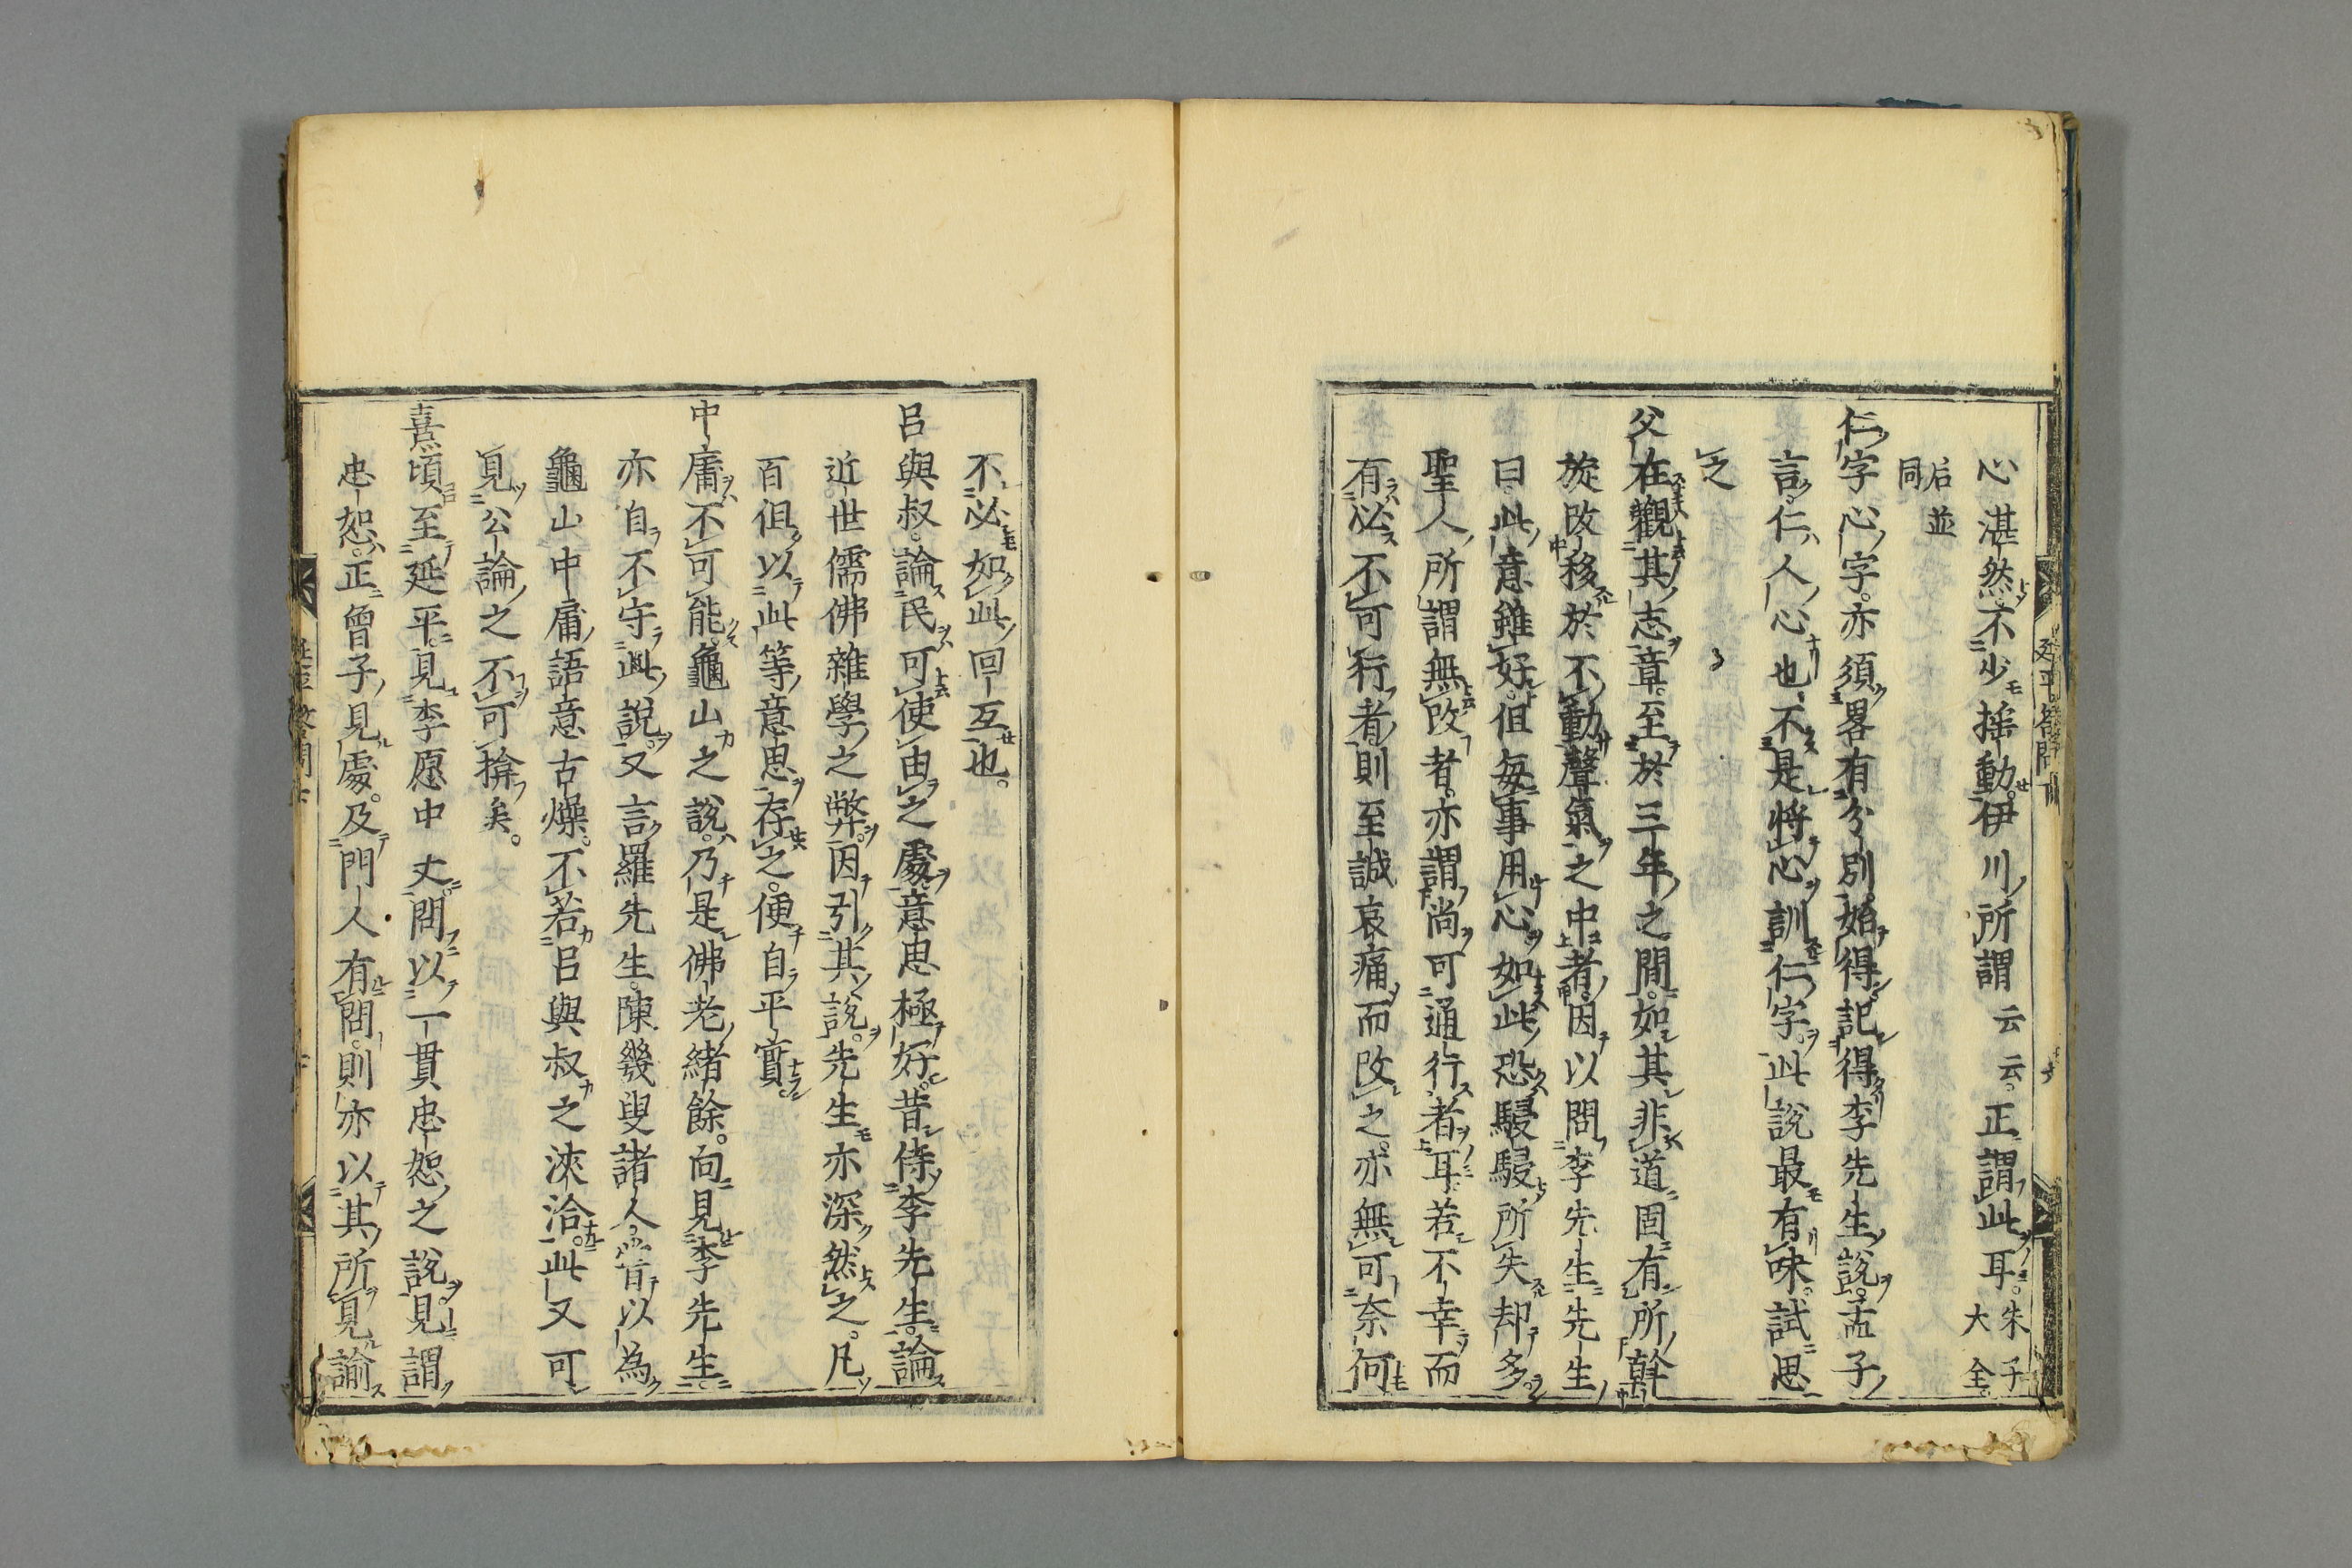 心湛然不少揺動伊川所謂云云正謂此耳朱子大全
后並同
仁字心字亦須畧有分别始得記得李先生說孟子
言仁人心也不是將心訓仁字此說最有味試思
之
父在觀其志章至於三年之間如其非道固有所幹
旋改移於不動聲氣之中者因以問李先生先生
曰此意雖好但每事用心如此恐駸駸所失却多
聖人所謂無改者亦謂尚可通行者耳若不幸而
有必不可行者則至誠哀痛而改之亦無可奈何
不必如此回互也
吕與叔論民可使由之處意思極好昔侍李先生論
近世儒佛雜學之弊因引其說先生亦深然之凡
百但以此等意思存之便自平實
中庸不可能龜山之說乃是佛老緒餘向見李先生
亦自不守此說又言羅先生陳幾叟諸人皆以為
龜山中庸語意古燥不若吕與叔之浹洽此又可
見公論之不可揜矣
熹頃至延平見李愿中丈問以一貫忠恕之說見謂
忠恕正曾子見處及門人有問則亦以其所見諭